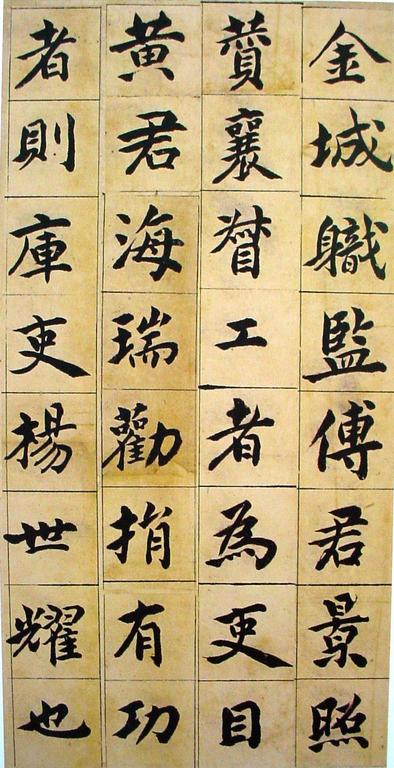 金城軄監傅君景照
贊襄督工者為吏目
黃君海瑞勸捐有功
者則庫吏楊世耀也